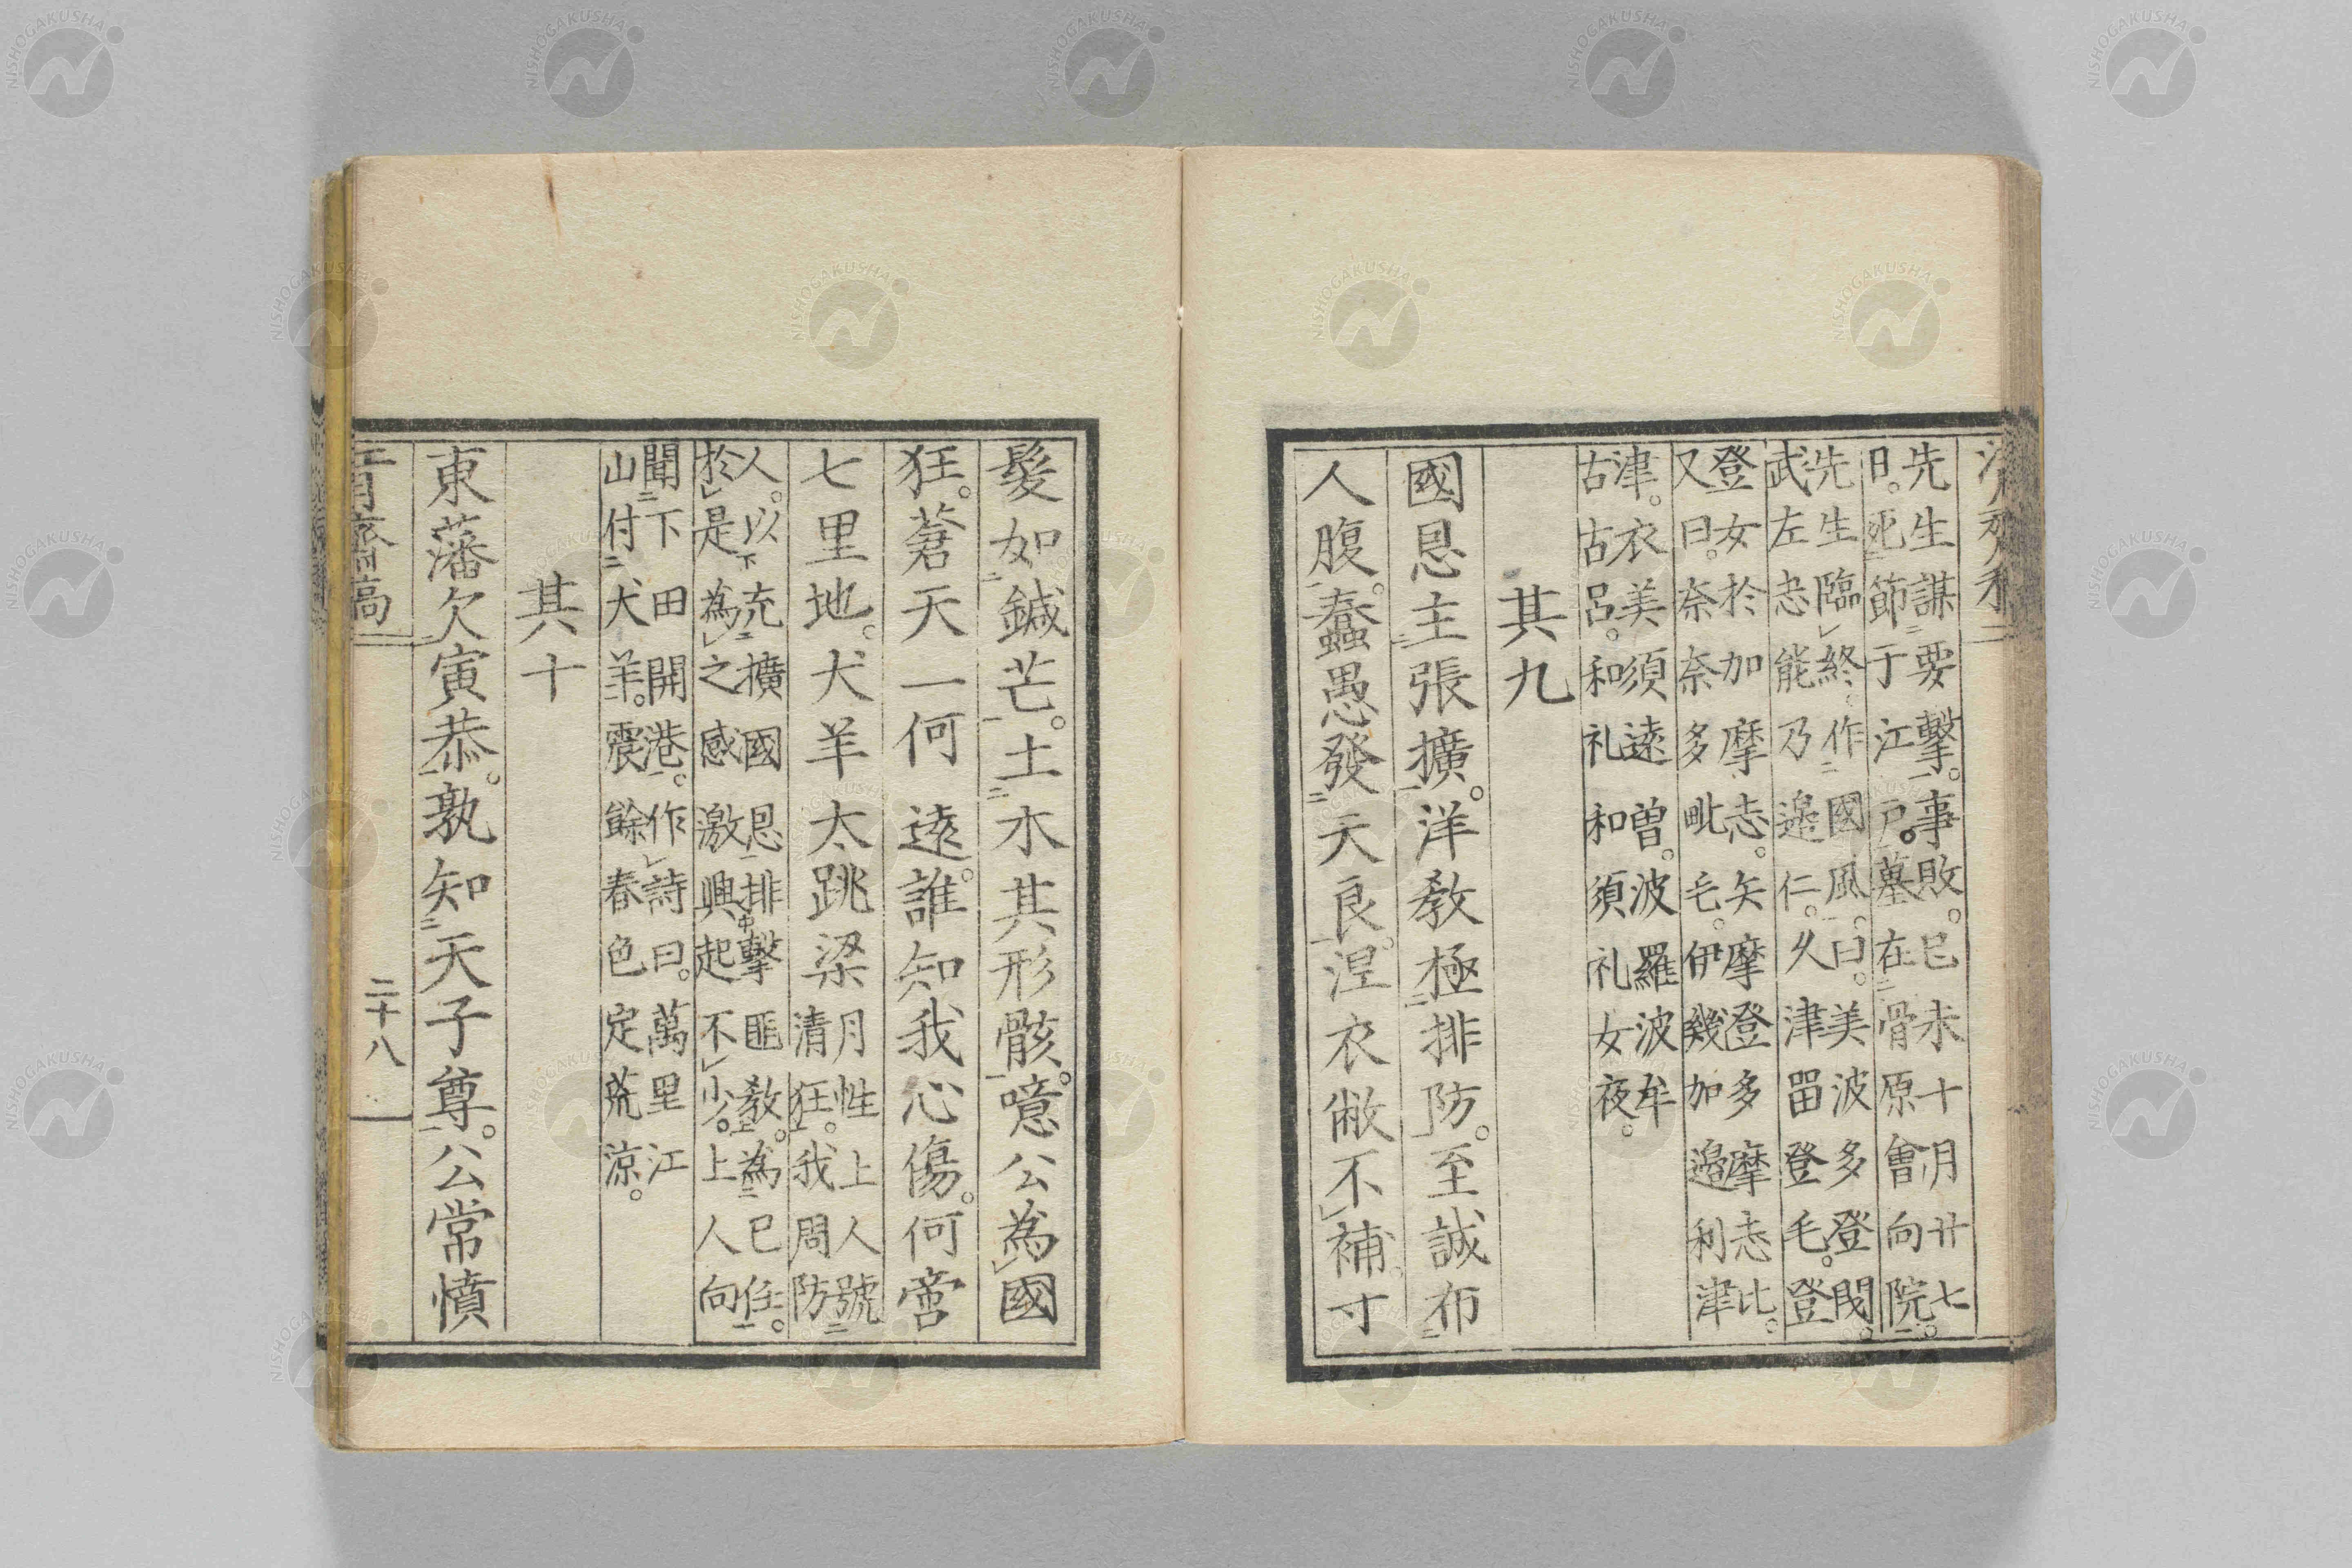 先生謀要撃。事敗。已未十月廿七
日。死節于江戸。墓在骨原會向院。
先生臨終。作國風。曰。美波多登閲。
武左志能乃邉仁。久津畄登毛。登
登女於加摩志。矢摩登多摩志比。
又曰。奈奈多毗毛。伊幾加邉利津
津。衣美須遠曽。波羅波牟
古古呂。和礼和須礼女夜。
其九
國恩主張擴。洋教極排防。至誠布
人腹。蠢愚發天良。涅衣敝不補。寸
髮如鍼芒。土木其形骸。噫公為國
狂。蒼天一何遠。誰知我心傷。何啻
七里地。犬羊太跳梁
月性上人號
清狂。我周防
人。以充擴國恩排擊匪教。為已任。
於是為之感激興起不少。上人向
聞下田開港。作詩曰。萬里江
山付犬羊。震餘春色定荒涼。
其十
東藩欠寅恭。孰知天子尊。公常憤
二十八
NISHOGAKUSHA